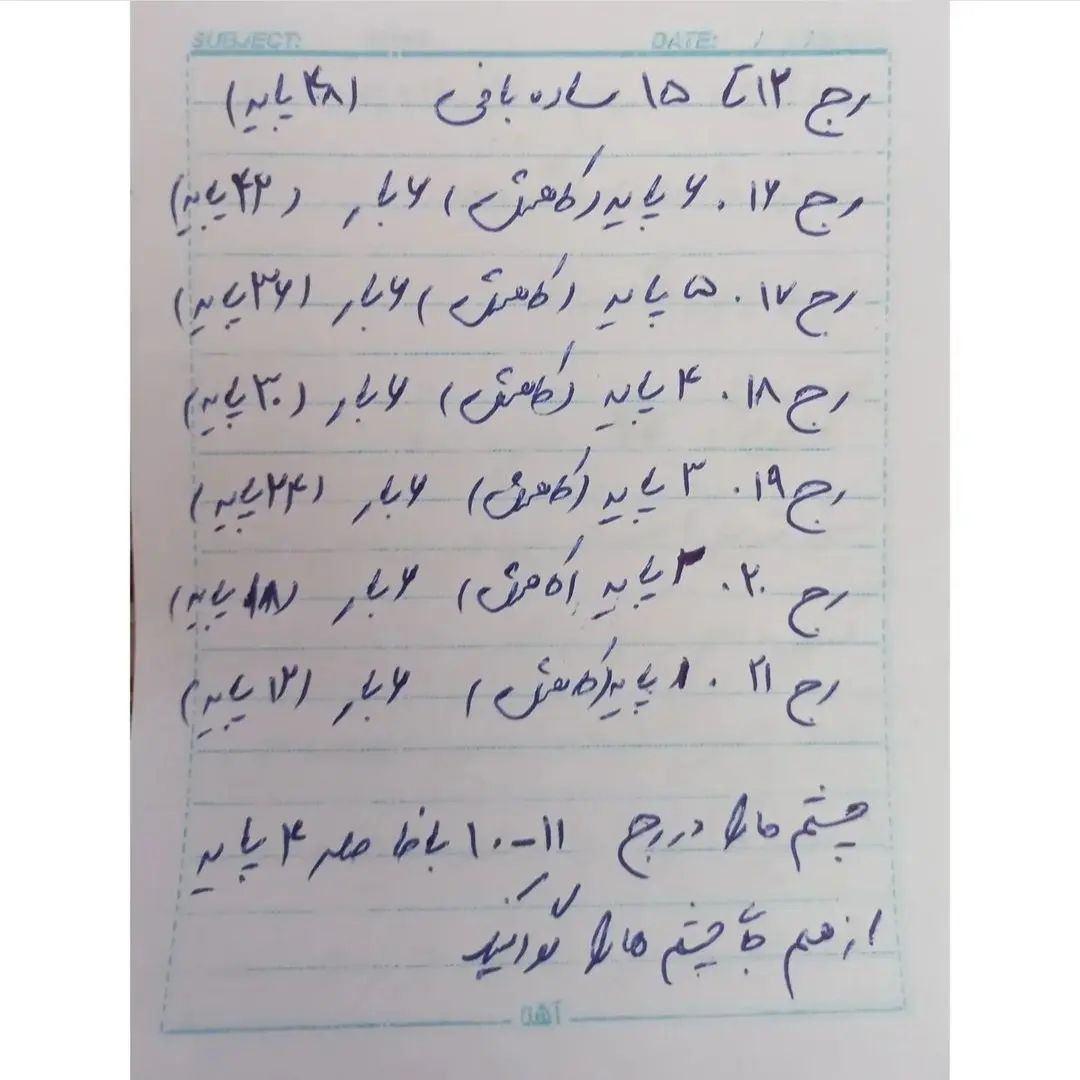 SUBJECT: DATE: / /
رج ۱۲ تا ۱۵ ساده بافی (۴۸ پایه)
رج ۱۶. ۶ پایه (کاهش) ۶ بار (۴۲ پایه)
رج ۱۷. ۵ پایه (کاهش) ۶ بار (۳۶ پایه)
رج ۱۸. ۴ پایه (کاهش) ۶ بار (۳۰ پایه)
رج ۱۹. ۳ پایه (کاهش) ۶ بار (۲۴ پایه)
رج ۲۰. ۲ پایه (کاهش) ۶ بار (۱۸ پایه)
رج ۲۱. ۱ پایه (کاهش) ۶ بار (۱۲ پایه)
چشم ها را در رج ۱۱-۱۰ با فاصله ۴ پایه
از هم جا چشم ها را